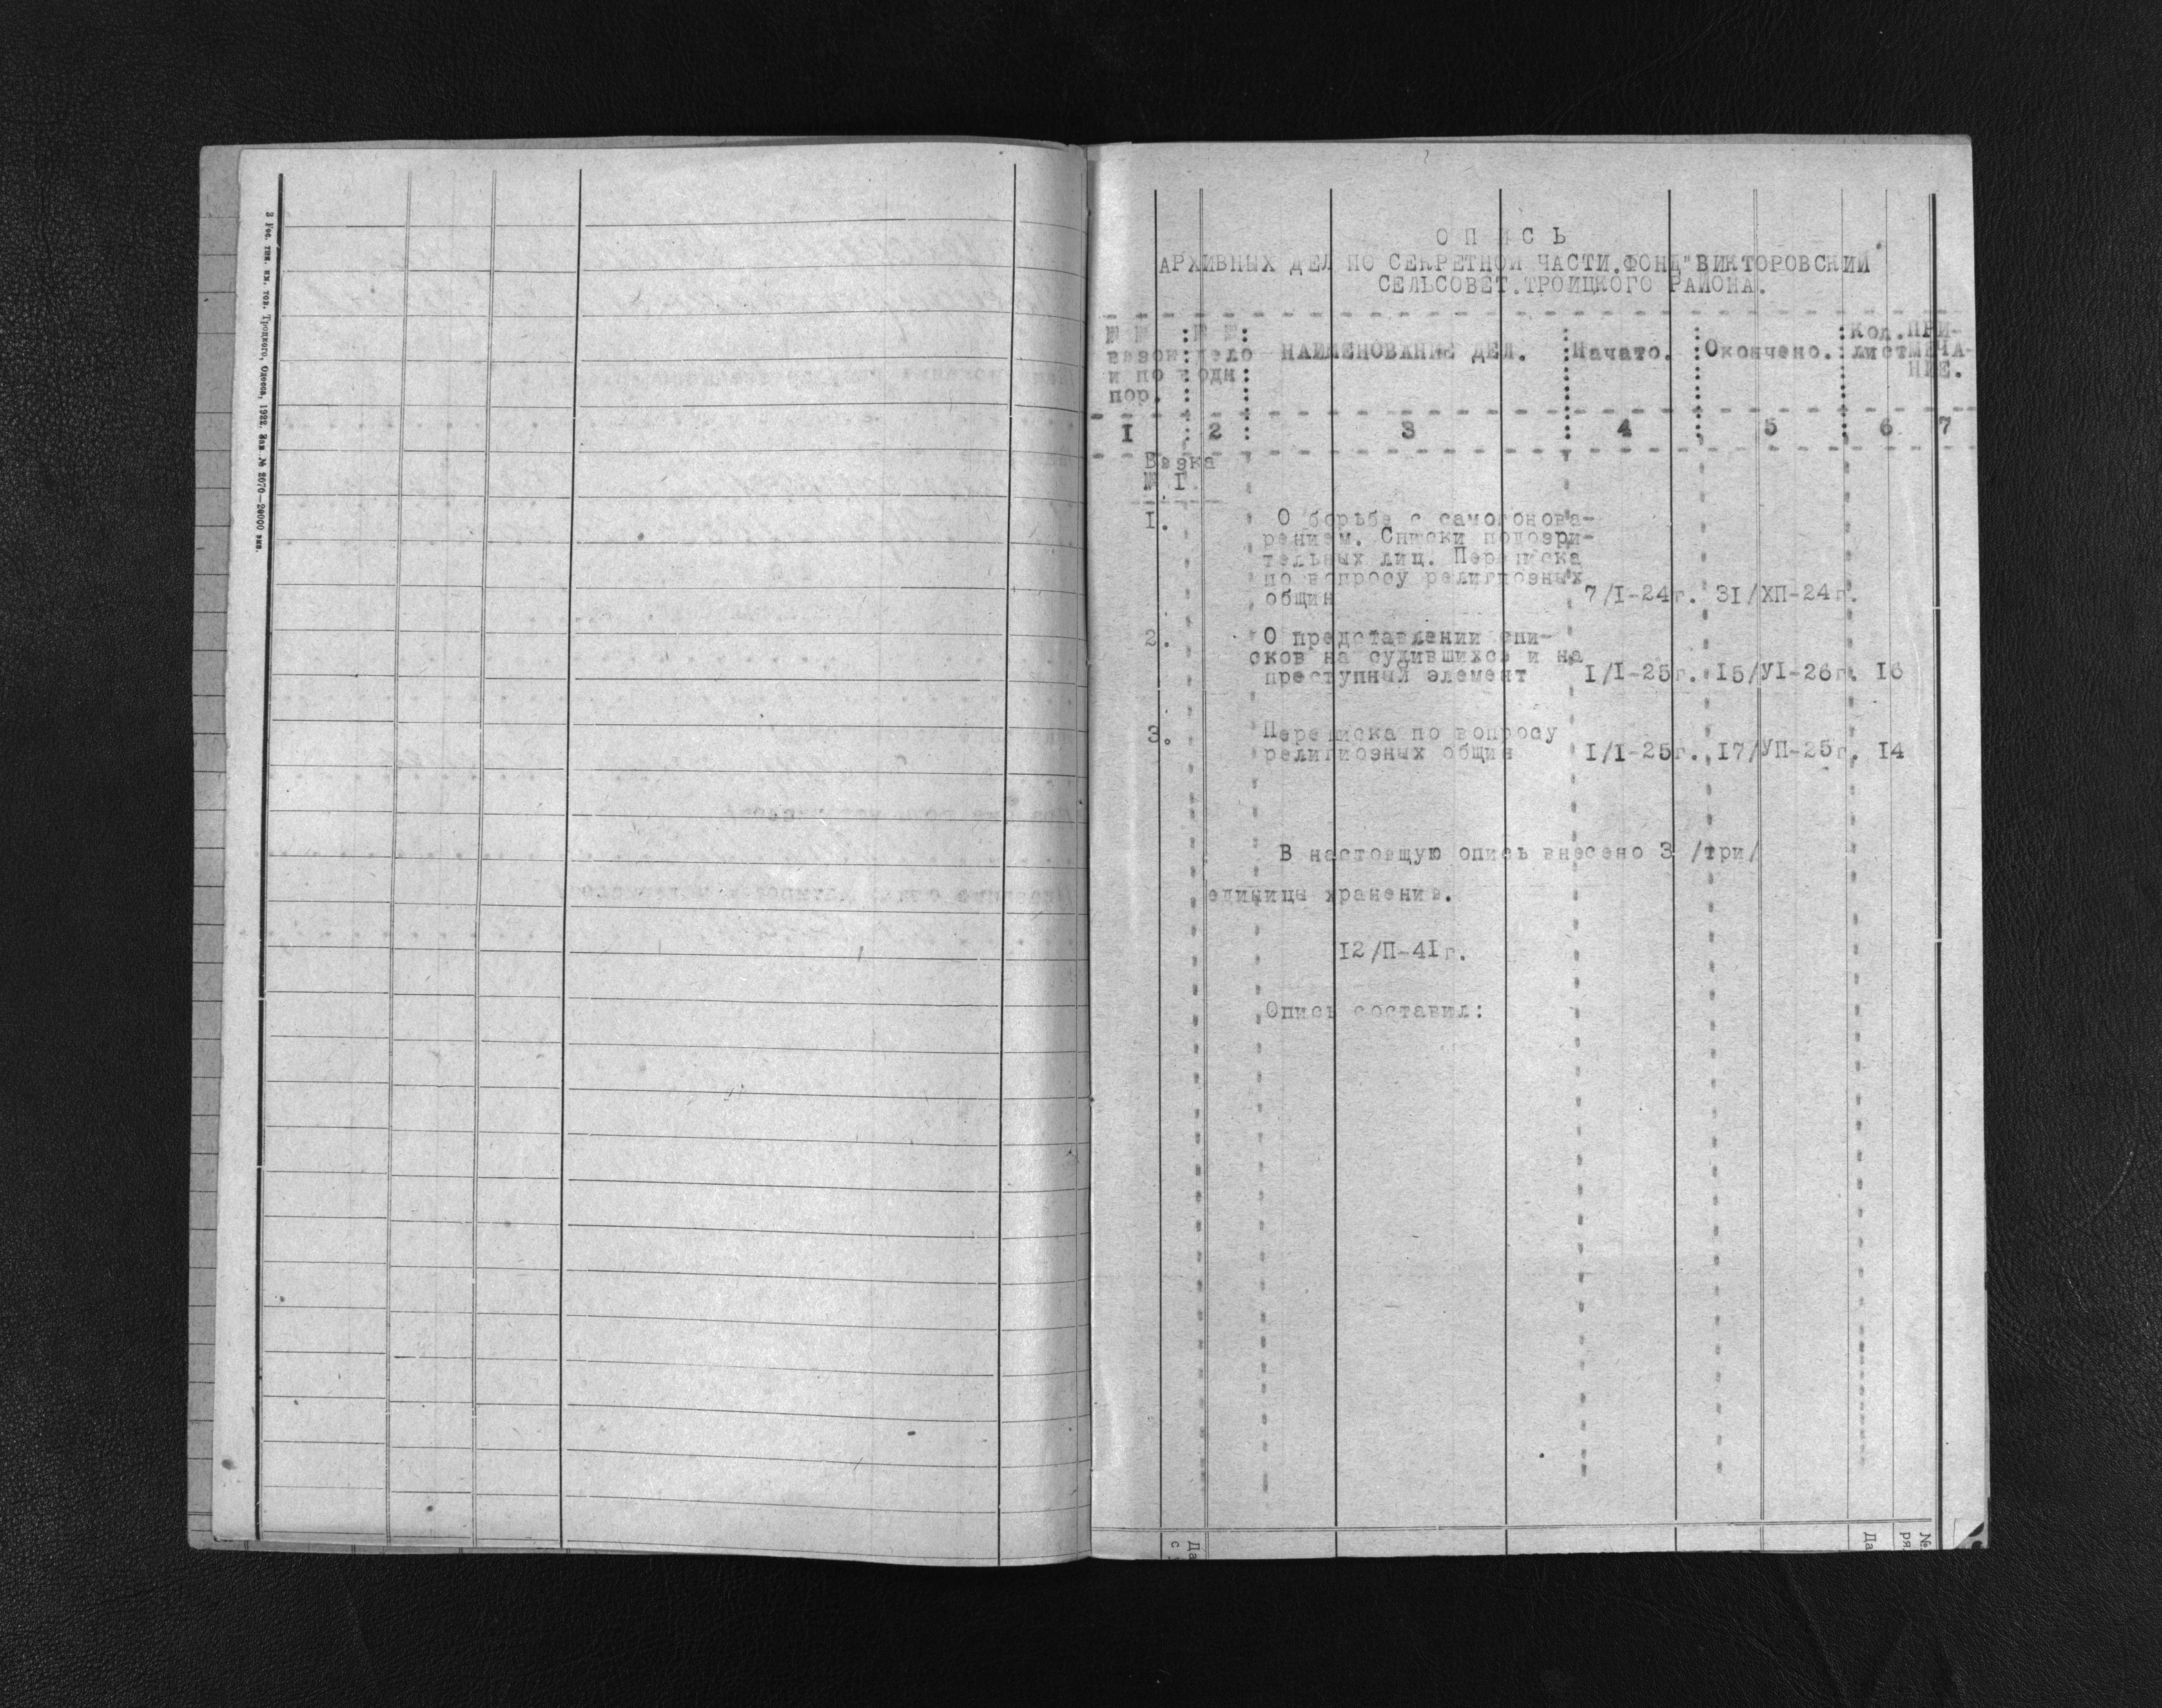 3 Гос. тип. им. тов. Троцкого, Одесса, 1922. Зак № 2670—20000 экз.
О П И С Ь
АРХИВНЫХ ДЕЛ ПО СЕКРЕТНОЙ ЧАСТИ.ФОНД"ВИКТОРОВСКИЙ
СЕЛЬСОВЕТ.ТРОИЦКОГО РАЙОНА.
№ № : № № : Кол. ПРИ-
вязок: дело НАИМЕНОВАНИЕ ДЕЛ. Начато. Окончено. лист МЕЧА-
и по водн НИЕ.
пор.
I 2 3 4 5 6 7
Вязка
№ I
I. О борьбе с самогонова-
рением. Списки подозри-
тельных лиц. Переписка
по вопросу религиозных
общин 7/I-24г. 3I/ХП-24г.
2. О представлении спи-
сков на судившихся и на
преступный элемент I/I-25г. I5/УI-26г. I6
3. Переписка по вопросу
религиозных общин I/I-25г. I7/УП-25г. I4
В настоящую опись внесено 3 /три/
единицы хранения.
I2/П-4Iг.
Опись составил:
Да
с
Да
№
ря